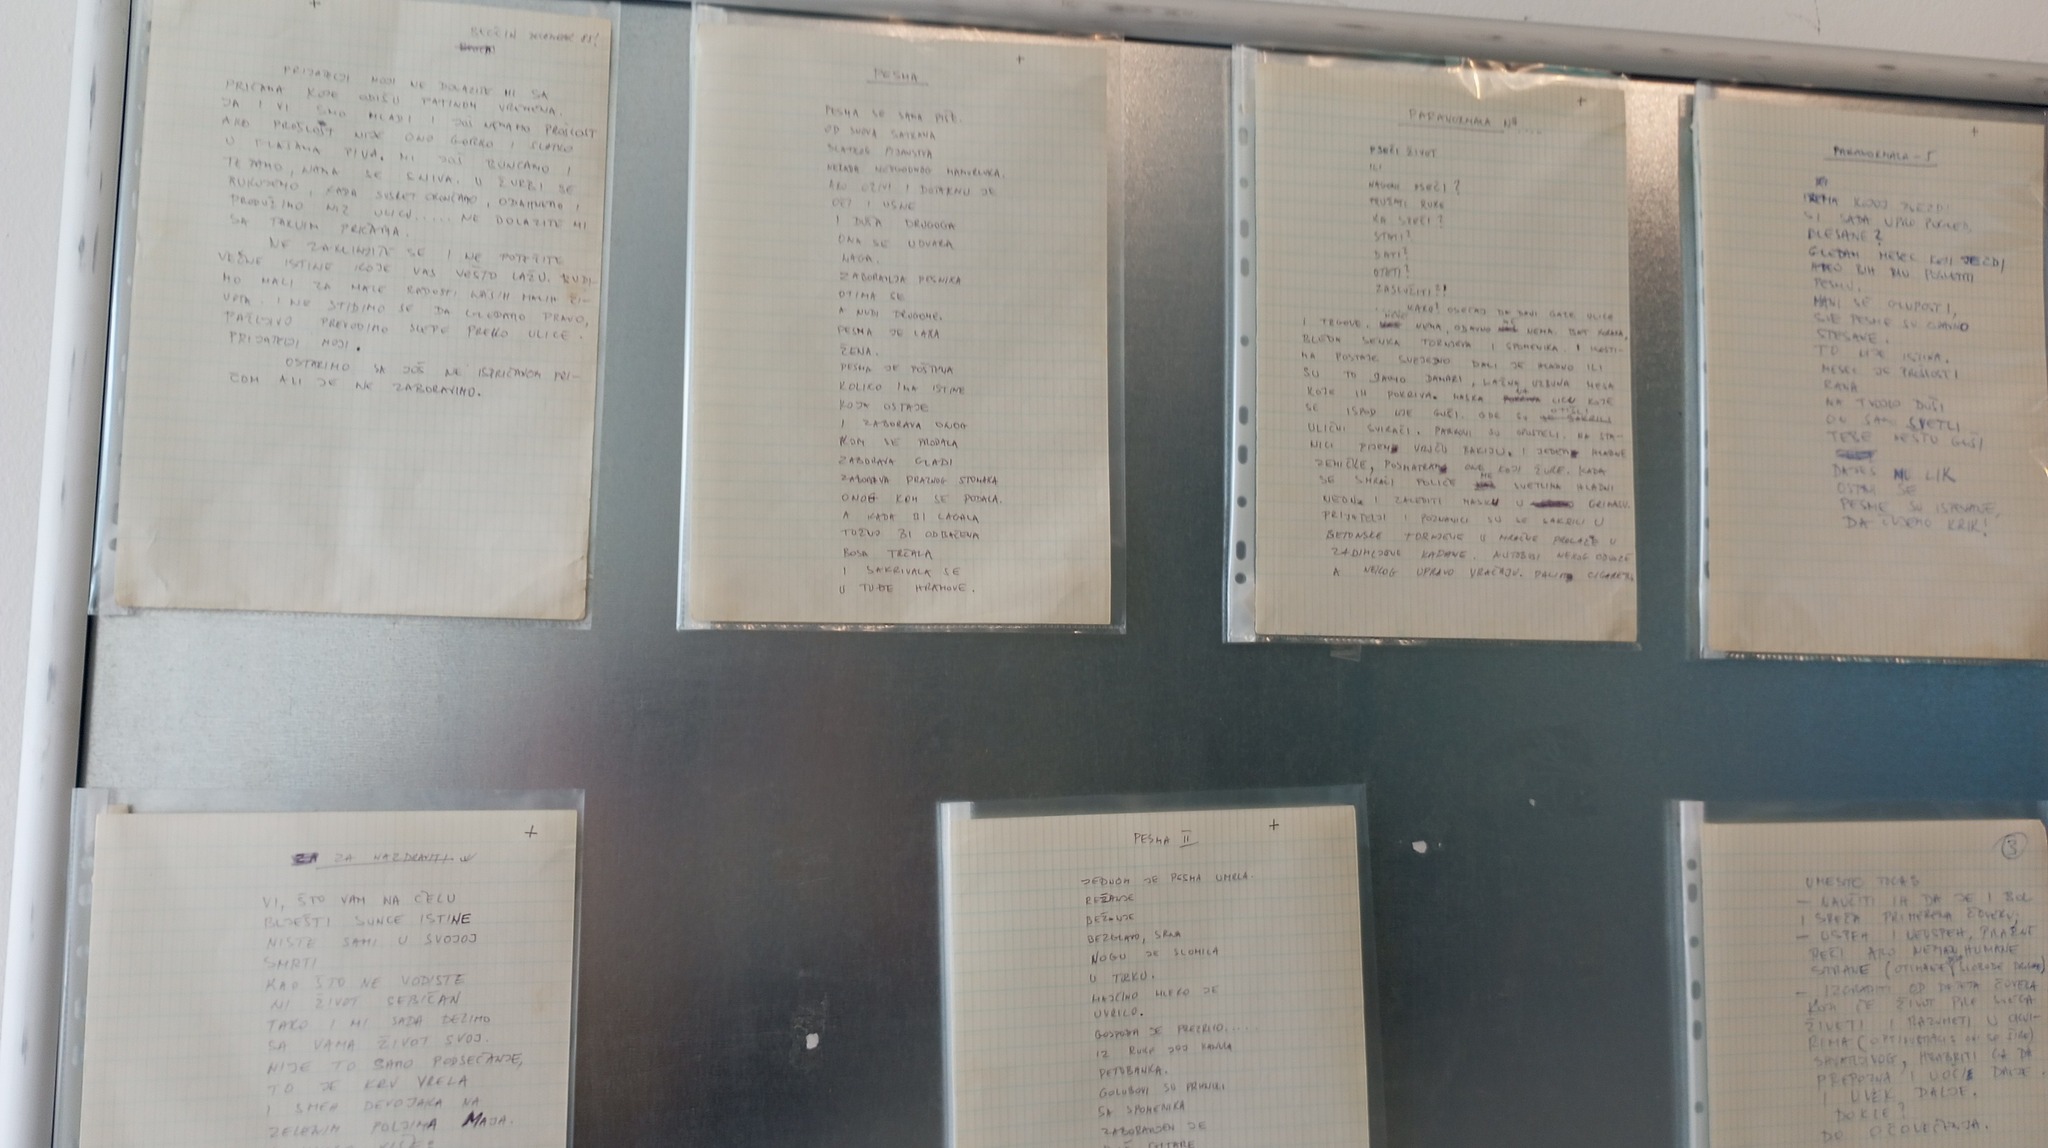 PRIJATELJI MOJI NE DOLAZITE MI SA
PRIČAMA KOJE ODIŠU PATINOM VREMENA.
JA I VI SMO MLADI I JOŠ NEMAMO PROŠLOST
AKO PROŠLOST NIJE ONO GORKO I SLATKO
U FLAŠAMA PIVA. MI JOŠ BUNCAMO I
NAMA SE SNIVA. U ŽURBI SE
RUKUJEMO, KADA SUSRET OKONČAMO, ODAHNEMO I
PRODUŽIMO NIZ ULICU..... NE DOLAZITE MI
SA TAKVIM PRIČAMA.
NE ZAKLINJITE SE I NE POTEŽITE
VEČNE ISTINE KOJE VAS VEŠTO LAŽU. BUDI-
MO MALI ZA MALE RADOSTI NAŠIH MALIH ŽI-
VOTA. I NE STIDIMO SE DA GLEDAMO PRAVO,
PAŽLJIVO PREVODIMO SLEPE PREKO ULICE.
PRIJATELJI MOJI.
OSTARIMO SA JOŠ NE ISPRIČANOM PRI-
ČOM ALI JE NE ZABORAVIMO.
PESMA
PESMA SE SAMA PIŠE.
OD SNOVA SATKANA
SLATKOG PIJANSTVA
NEKADA NEPOVODNOG MAMURLUKA.
AKO OŽIVI I DOTAKNU JE
OČI I USNE
I DUŠA DRUGOGA
ONA SE UDVARA
NAGA.
ZABORAVLJA PESNIKA
OTIMA SE
A NUDI DRUGOME.
PESMA JE LAKA
ŽENA.
PESMA JE POŠTENA
KOLIKO IMA ISTINE
KOJA OSTAJE
I ZABORAVA ONOG
KOM SE PRODALA
ZABORAVA GLADI
ZABORAVA PRAZNOG STOMAKA
ONOG KOM SE PODALA.
A KADA BI LAGALA
TUŽNO BI ODBAČENA
BOSA TRČALA
I SAKRIVALA SE
U TUĐE HRAMOVE.
PARAVORMALA No....
PSEĆI ŽIVOT
ILI
NAGON PSEĆI?
PRUŽATI RUKU
KA SREĆI?
STATI?
DATI?
OTETI?
ZASLUŽITI?!
KAKO! OSEĆAJ DA SAVI GAZE ULICE
I TRGOVE. NEMA, ODAVNO NEMA.
BLEDA SENKA TORNJEVA I SPOMENIKA. I KOSTI-
MA POSTAJE SVEJEDNO DALI JE HLADNO ILI
SU TO SAMO DAMARI, LAŽNA UZBUNA MESA
KOJE IH POKRIVA. MASKA LICU KOJE
SE ISPOD NJE GUŠI. GDE SU OTIŠLI
ULIČNI SVIRAČI. PARKOVI SU OPUSTELI. NA STA-
NICI PIJEM VRUĆU RAKIJU. I JEDEM HLADNE
ZEMIČKE, POSMATRAM ONE KOJI ŽURE. KADA
SE SMRAČI POLICE SVETLINA HLADNI
NEONA I ZALEDITI MASKU U GRIMASU.
PRIJATELJI I POZNANICI SU SE SAKRILI U
BETONSKE TORNJEVE U MRAČNE PROLAZE U
ZADIMLJENE KAFANE. AUTOBUSI NEKOG ODVOZE
A NEKOG UPRAVO VRAĆAJU. PALIM CIGARETU
PARAVORMALA - I
PREMA KOJOJ ZVEZDI
SI SADA UPRO POGLED,
PLESAČE?
GLEDAM MESEC KOJI JEZDI
AKO BIH MU POSVETI
PESMU.
MANI SE GLUPOSTI,
SVE PESME SU ODAVNO
STESANE.
TO NIJE ISTINA.
MESEC JE PROŠLOSTI
RANA
NA TVOJOJ DUŠI
ON SAM SVETLI
TEBE NEŠTO GUŠI
DAJEŠ MU LIK
OSTAVI SE
PESME SU ISPEVANE,
DA ČUJEMO KRIK!
ZA NAZDRAVITI
VI, ŠTO VAM NA ČELU
BLJEŠTI SUNCE ISTINE
NISTE SAMI U SVOJOJ
SMRTI
KAO ŠTO NE VODISTE
NI ŽIVOT SEBIČAN
TAKO I MI SADA DELIMO
SA VAMA ŽIVOT SVOJ.
NIJE TO SAMO PODSEĆANJE,
TO JE KRV VRELA
I SMEH DEVOJAKA NA
ZELENIM POLJIMA MAJA.
PESMA II
JEDNOM JE PESMA UMRLA.
REŽANJE
BEŽANJE
BEZGLAVO, SRNA
NOGU JE SLOMILA
U TRKU.
MAJČINO MLEKO JE
UVRILO.
GOSPODA JE PREZRILO.....
IZ RUKE JOJ KANULA
PETOBANKA.
GOLUBOVI SU PRHNULI
SA SPOMENIKA
ZABORAVLJEN JE
3
UMESTO TOGA
- NAUČITI IH DA JE I BOL
I SREĆA PRIMERENA ČOVEKU,
- USPEH I NEUSPEH, PRAZNE
REČI AKO NEMAJU HUMANE
STRANE
- IZGRADITI OD DETETA ČOVEKA
KOJI ĆE ŽIVOT PRE SVEGA
ŽIVETI I RAZUMETI U OKVI-
RIMA
SAVLADIVOG, HRABRITI GA DA
PREPOZNA I UOČI DALJE.
I UVEK DALJE.
DOKLE?
DO OČOVEČENJA.